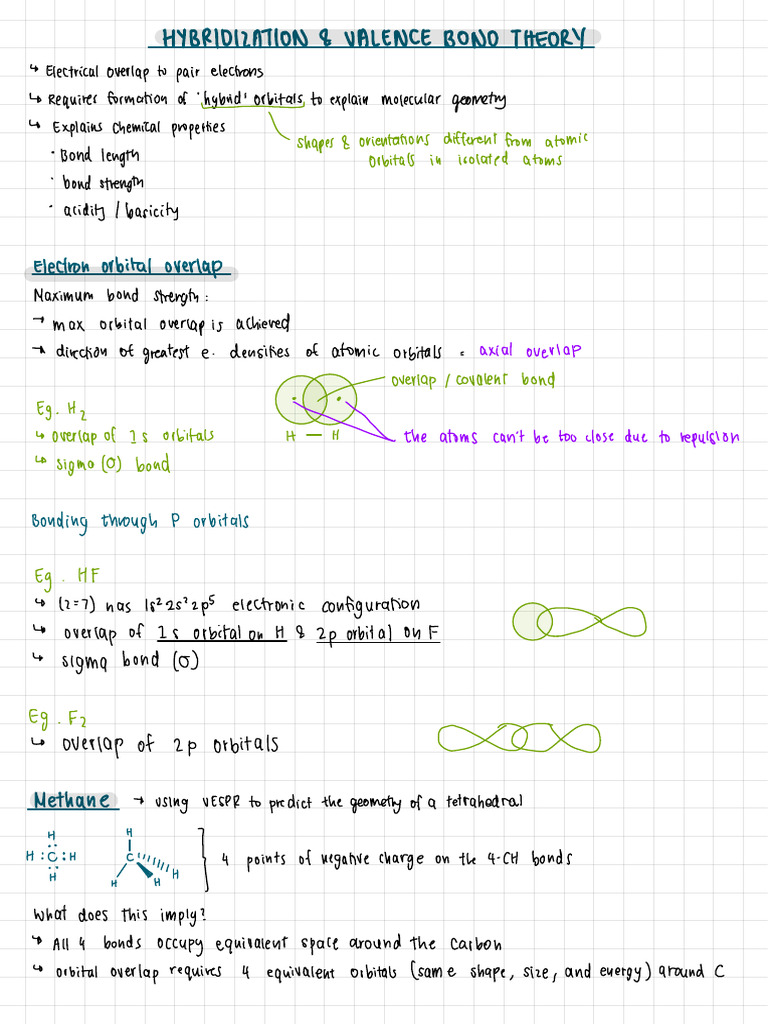 HYBRIDIZATION & VALENCE BOND THEORY
↳ Electrical overlap to pair electrons
↳ Requires formation of 'hybrid' orbitals to explain molecular geometry
↳ Explains chemical properties
shapes & orientations different from atomic
orbitals in isolated atoms
· Bond length
· bond strength
· acidity / basicity
Electron orbital overlap
Maximum bond strength:
→ max orbital overlap is achieved
→ direction of greatest e- densities of atomic orbitals = axial overlap
overlap / covalent bond
Eg. H2
↳ overlap of 1s orbitals
H — H
the atoms can't be too close due to repulsion
↳ sigma (σ) bond
Bonding through P orbitals
Eg. HF
↳ (z=7) has 1s² 2s² 2p⁵ electronic configuration
↳ overlap of 1s orbital on H & 2p orbital on F
↳ sigma bond (σ)
Eg. F2
↳ overlap of 2p orbitals
Methane → using VESPR to predict the geometry of a tetrahedral
H
H : C : H
H
H
C
H
H
H
4 points of negative charge on the 4-CH bonds
What does this imply?
↳ All 4 bonds occupy equivalent space around the carbon
↳ orbital overlap requires 4 equivalent orbitals (same shape, size, and energy) around C